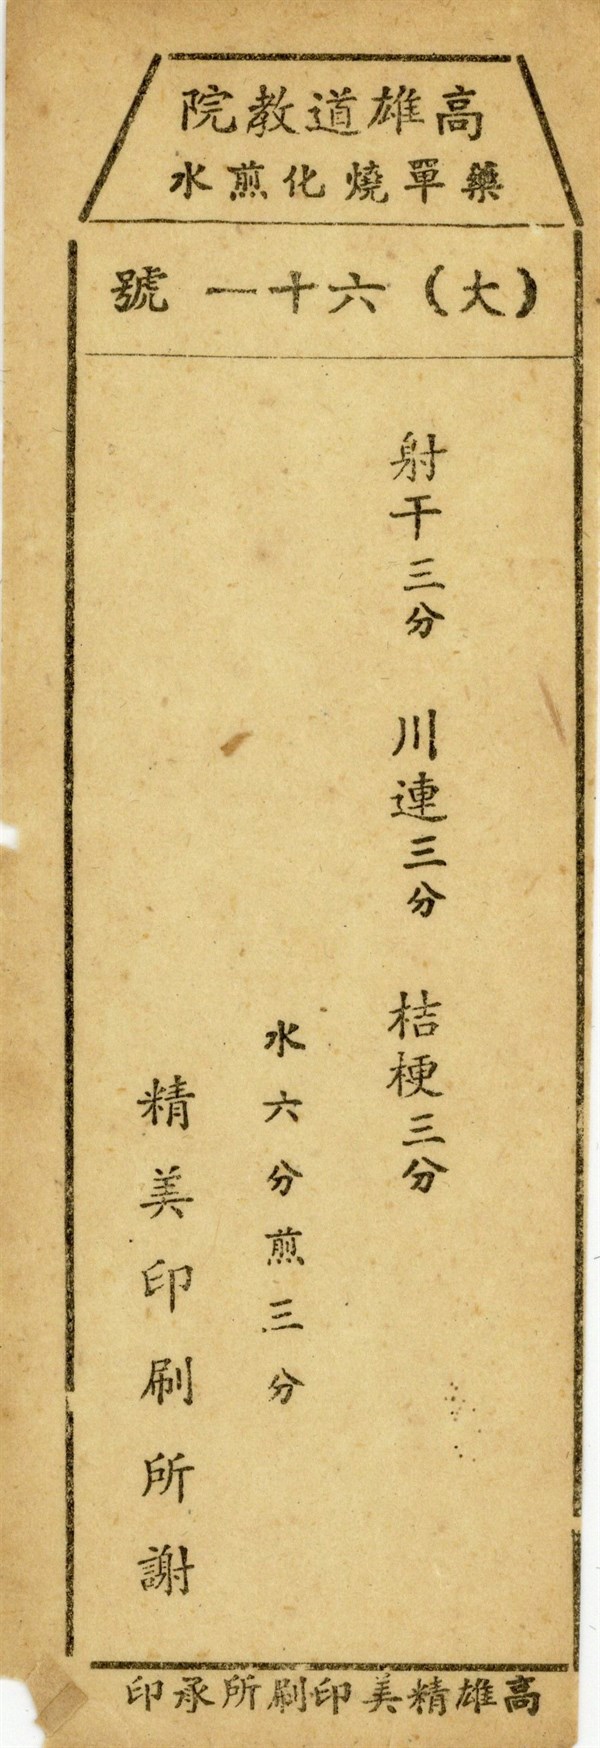 高雄道教院
藥單燒化煎水
（大）六十一號
射干三分 川連三分 桔梗三分
水六分煎三分
精美印刷所謝
高雄精美印刷所承印